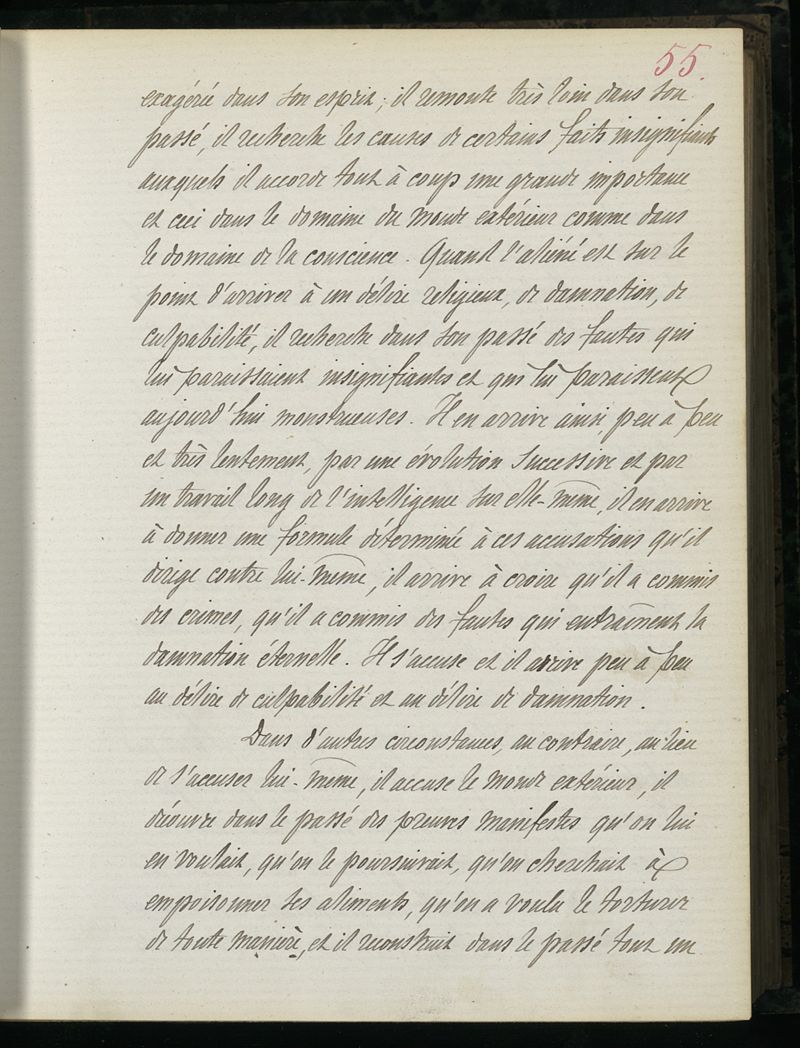 55.
exagérée dans son esprit; il remonte très loin dans son
passé, il recherche les causes de certains faits insignifiants
auxquels il accorde tout à coup une grande importance
et ceci dans le domaine du monde extérieur comme dans
le domaine de la conscience. Quand l'aliéné est sur le
point d'arriver à un délire religieux, de damnation, de
culpabilité, il recherche dans son passé des fautes qui
lui paraissaient insignifiantes et qui lui paraissent
aujourd'hui monstrueuses. Il en arrive ainsi, peu à peu
et très lentement, par une évolution successive et par
un travail long de l'intelligence sur elle-même, il en arrive
à donner une formule déterminée à ces accusations qu'il
dirige contre lui-même, il arrive à croire qu'il a commis
des crimes, qu'il a commis des fautes qui entraînent la
damnation éternelle. Il s'accuse et il arrive peu à peu
au délire de culpabilité et au délire de damnation.
Dans d'autres circonstances, au contraire, au lieu
de s'accuser lui-même, il accuse le monde extérieur, il
découvre dans le passé des preuves manifestes qu'on lui
en voulait, qu'on le poursuivait, qu'on cherchait à
empoisonner ses aliments, qu'on a voulu le torturer
de toute manière, et il reconstruit dans le passé tout un